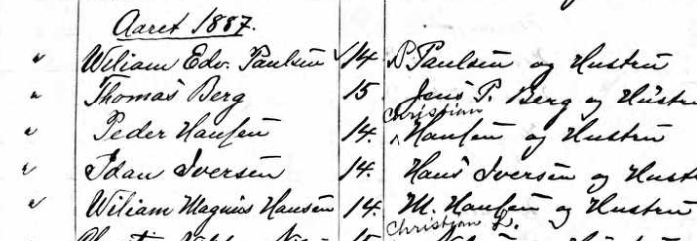 Aaret 1887.
" Wiliam Edv. Paulsen 14 P Paulsen og Hustru
" Thomas Berg 15 Jens P. Berg og Hustru
Christian
" Peder Hansen 14. Hansen og Hustru
" Idan Iversen 14. Hans Iversen og Hust
" Wiliam Magnus Hansen 14. M. Hansen og Hustru
Christian L.